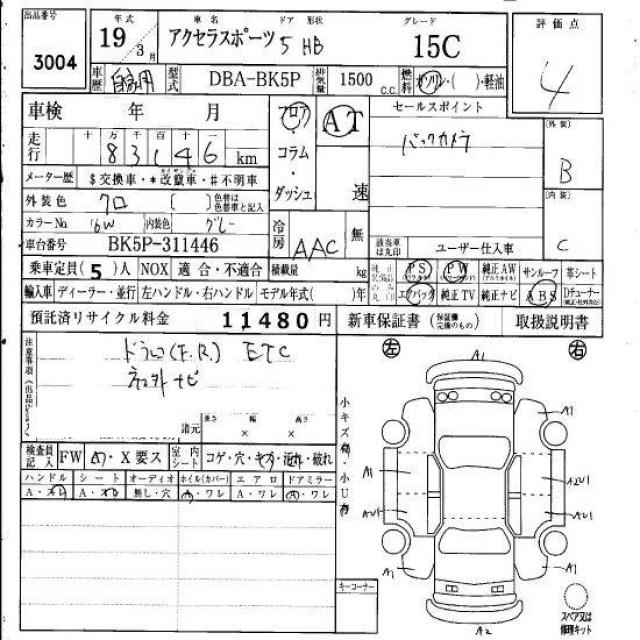 出品番号 年式 車名 ドア 形状 グレード 評価点
3004 19 3月 アクセラスポーツ 5 HB 15C 4
車歴 自家用 型式 DBA-BK5P 排気量 1500 C.C. 燃料 ガソリン・( )・軽油
車検 年 月 フロア AT セールスポイント
走行 十万千百十一 (外装)
83,146 km コラム・ バックカメラ B
メーター歴 $交換車・*改竄車・#不明車 ダッシュ 速 (内装)
外装色 クロ ( ) 色替は色替車と記入 C
カラーNo 16W 内装色 グレー 冷房 AAC 無
車台番号 BK5P-311446 該当車は丸印 ユーザー仕入車
乗車定員(5)人 NOX 適合・不適合 積載量 kg PS PW 純正AW サンルーフ 革シート
輸入車 ディーラー・並行 左ハンドル・右ハンドル モデル年式( )年 エアバッグ 純正TV 純正ナビ ABS Dチューナー
預託済リサイクル料金 11480 円 新車保証書 (保証欄完備のもの) 取扱説明書
注意事項 ドラレコ(F.R.) ETC 左 A1 右
社外ナビ
諸元 長さ × 幅 × 高さ 小キズ有・小U有
検査員記入 FW A7・X要ス 室内シート コゲ・穴・キズ・汚れ・破れ
ハンドル シート オーディオ ホイル(カバー) エアロ ドアミラー
A・スレ A・スレ 無し・穴 A・ワレ A・ワレ A・ワレ
A1 A1
A1 A2U1
AU1 AU1
A1 A1
キーコーナー スペア又は修理キット
A2